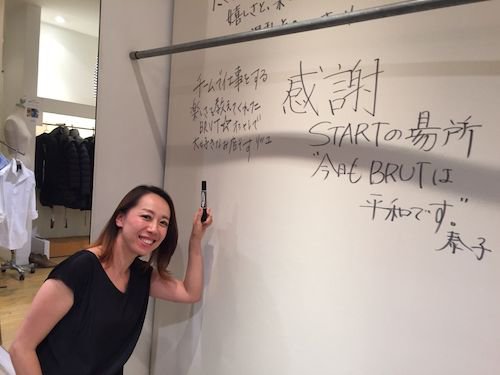 嬉しさと、
チームで仕事をする
楽しさを教えてくれた
BRUT☆
感謝
STARTの場所
"今日もBRUTは
平和です。"
泰子